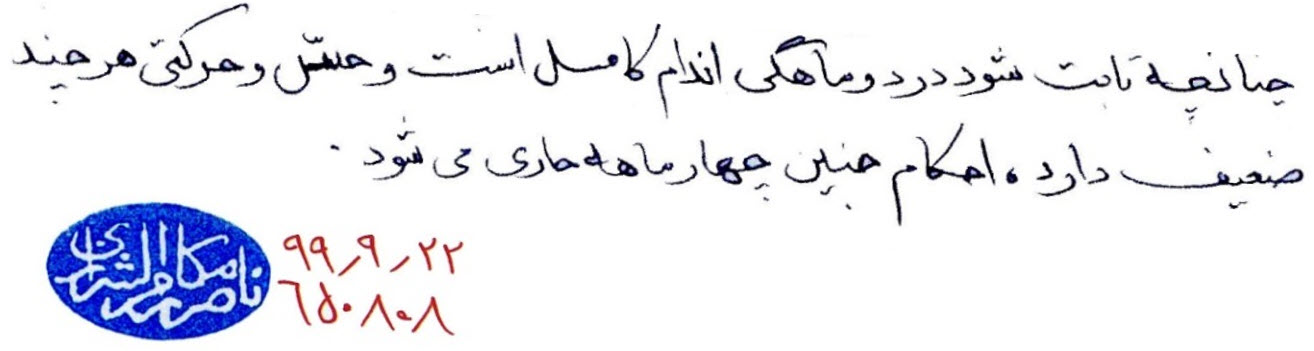 چنانچه ثابت شود در دو ماهگی اندام کامل است و حسّ و حرکتی هر چند
ضعیف دارد، احکام جنین چهار ماهه جاری می شود.
۹۹٫۹٫۲۲
۶۵۰۸۰۸
ناصر مکارم الشیرازی